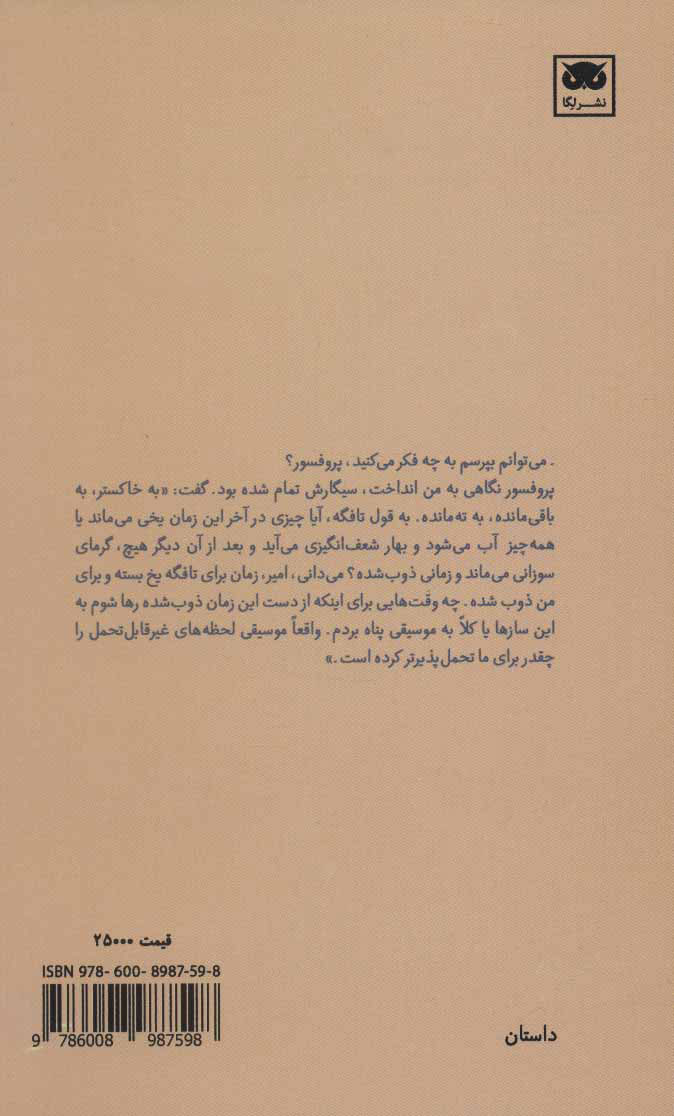 نشر لگا
ـ می‌توانم بپرسم به چه فکر می‌کنید، پروفسور؟
پروفسور نگاهی به من انداخت، سیگارش تمام شده بود. گفت: «به خاکستر، به
باقی‌مانده، به ته‌مانده. به قول تافگه، آیا چیزی در آخر این زمان یخی می‌ماند یا
همه‌چیز آب می‌شود و بهار شعف‌انگیزی می‌آید و بعد از آن دیگر هیچ، گرمای
سوزانی می‌ماند و زمانی ذوب‌شده؟ می‌دانی، امیر، زمان برای تافگه یخ بسته و برای
من ذوب شده. چه وقت‌هایی برای اینکه از دست این زمان ذوب‌شده رها شوم به
این سازها یا کلاً به موسیقی پناه بردم. واقعاً موسیقی لحظه‌های غیرقابل‌تحمل را
چقدر برای ما تحمل‌پذیرتر کرده است.»
قیمت ۲۵۰۰۰
ISBN 978- 600- 8987-59-8
9 786008 987598
داستان